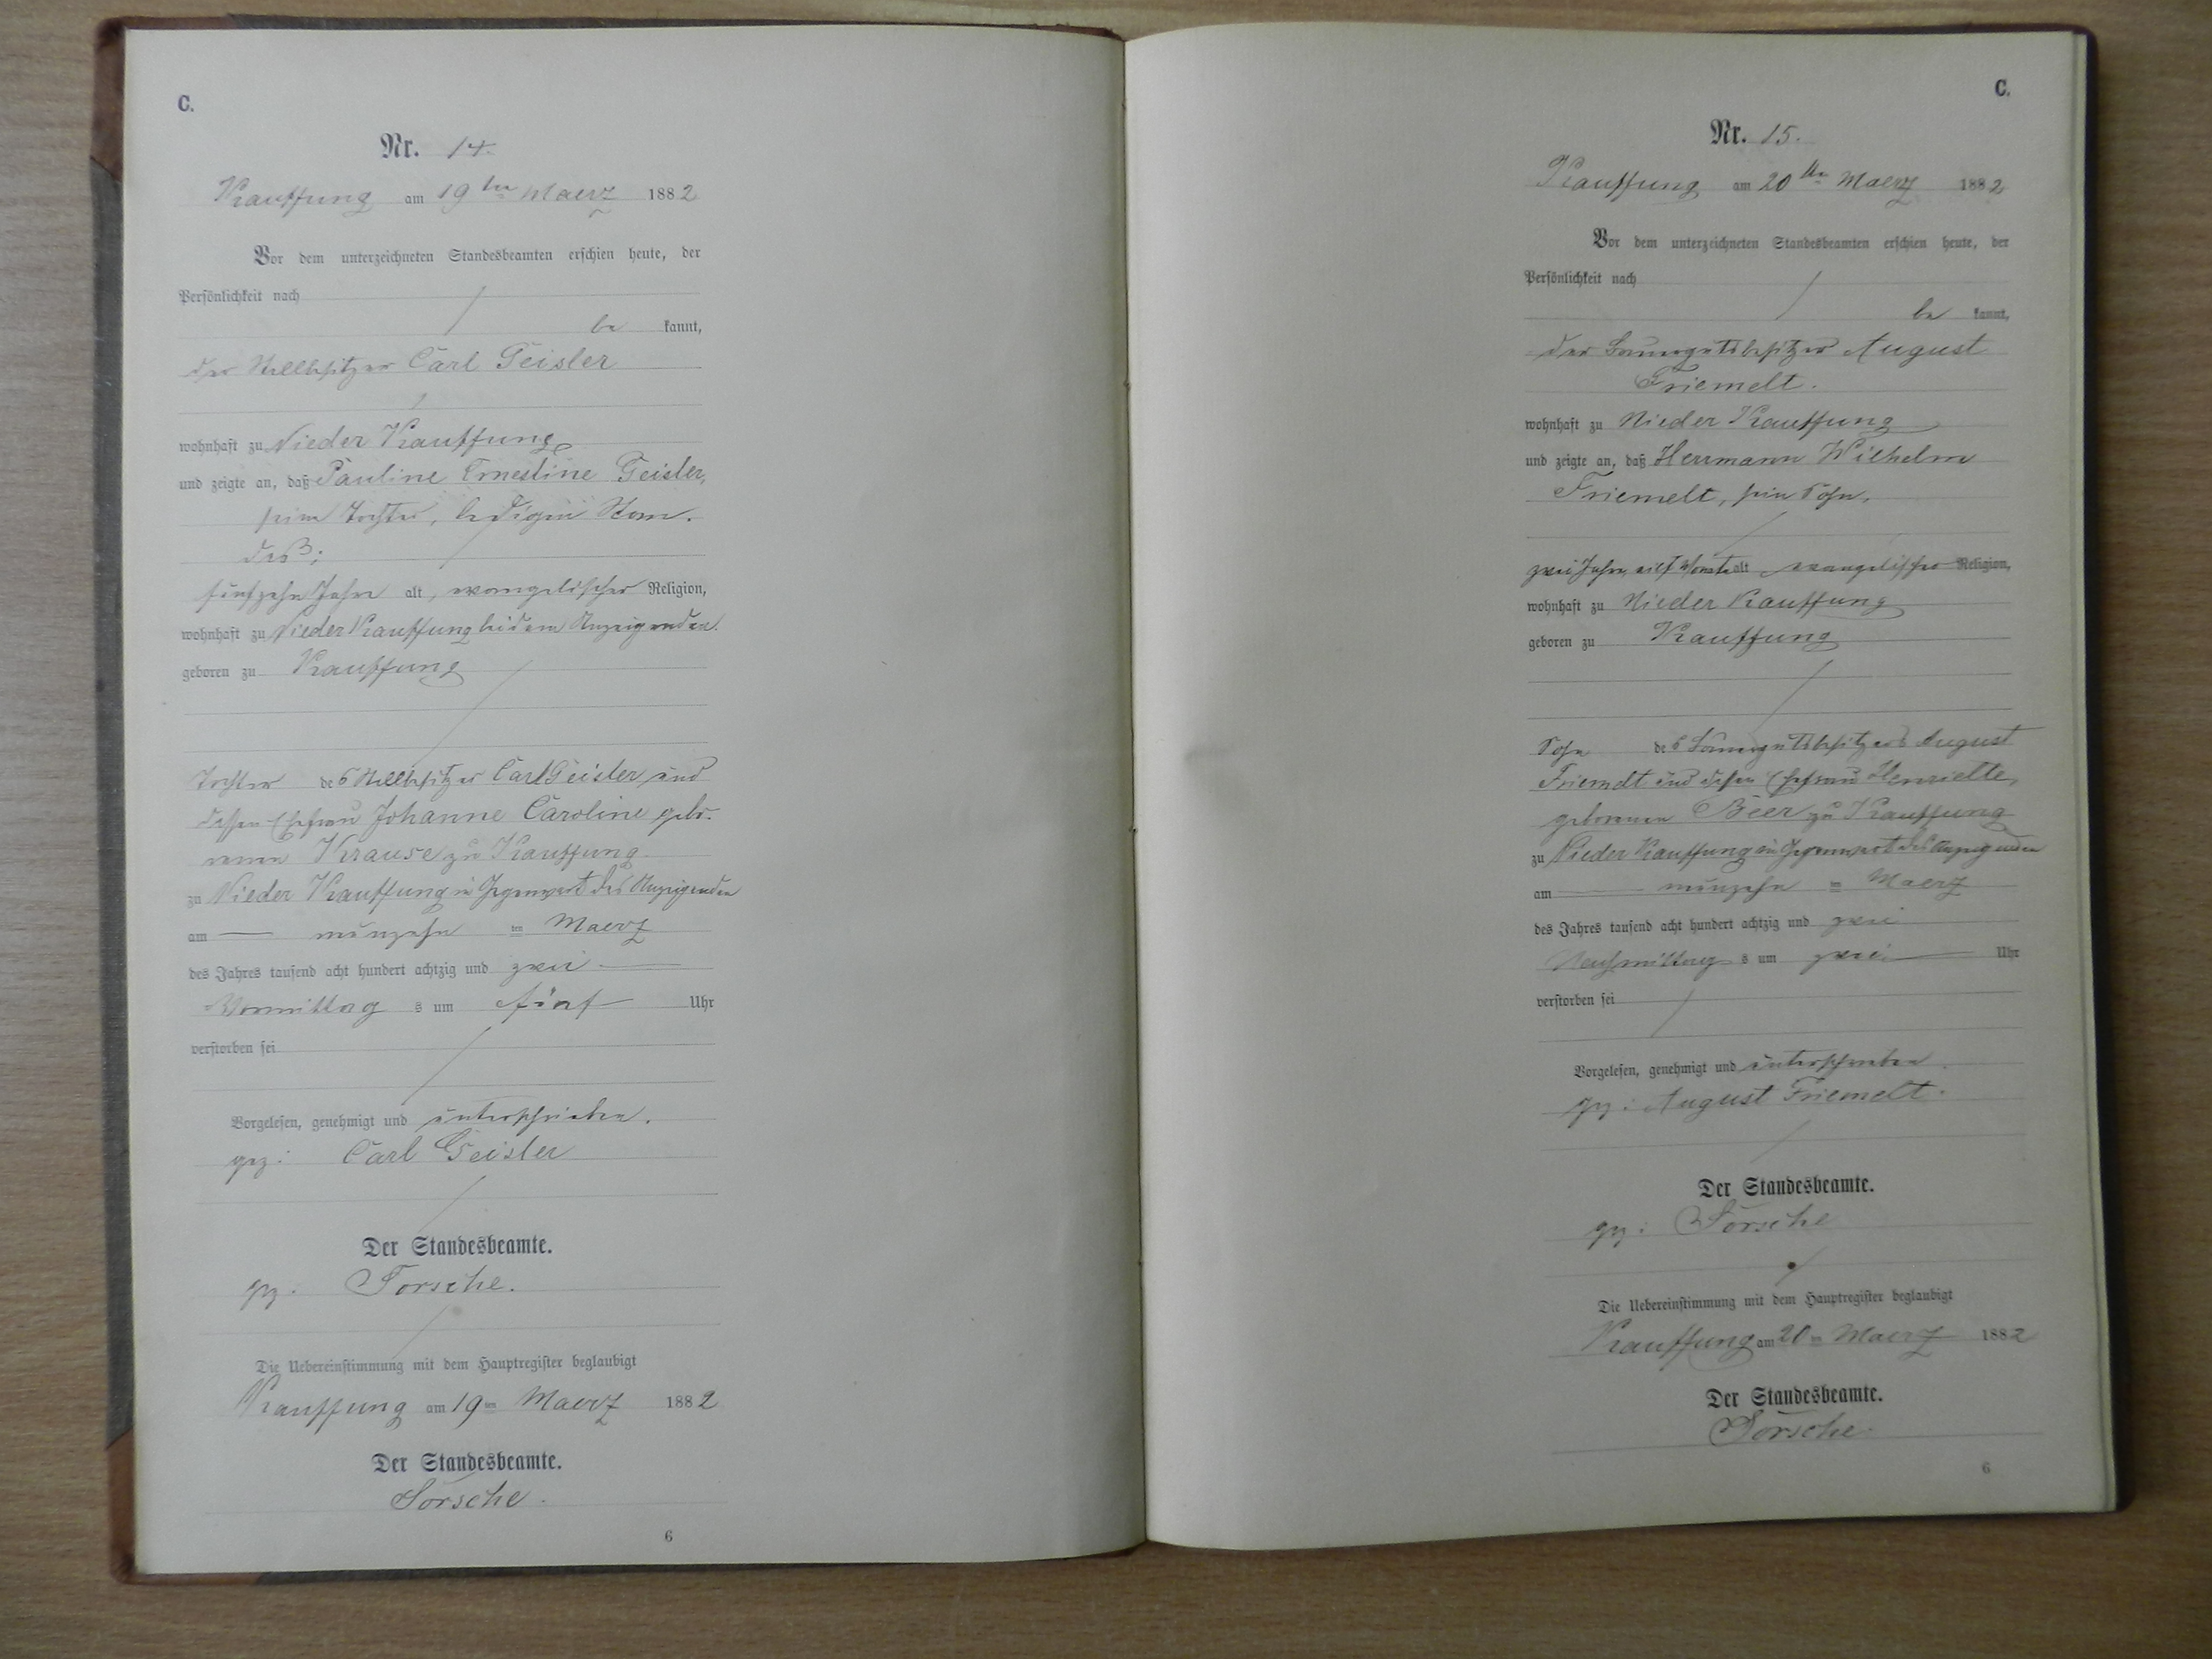 C.
Nr. 14.
Kauffung am 19ten Maerz 1882
Vor dem unterzeichneten Standesbeamten erschien heute, der
Persönlichkeit nach
be kannt,
der Stellbesitzer Carl Geisler
wohnhaft zu Nieder Kauffung
und zeigte an, daß Pauline Ernestine Geisler,
seine Tochter, ledigen Stan-
des;
fünfzehn Jahre alt, evangelischer Religion,
wohnhaft zu Nieder Kauffung bei dem Anzeigenden.
geboren zu Kauffung
Tochter des Stellbesitzer Carl Geisler und
dessen Ehefrau Johanne Caroline gebo-
renen Krause zu Kauffung
zu Nieder Kauffung in Gegenwart des Anzeigenden
am neunzehn ten Maerz
des Jahres tausend acht hundert achtzig und zwei
Vormittag s um fünf Uhr
verstorben sei
Vorgelesen, genehmigt und unterschrieben.
gez: Carl Geisler
Der Standesbeamte.
gez. Försche.
Die Uebereinstimmung mit dem Hauptregister beglaubigt
Kauffung am 19ten Maerz 1882
Der Standesbeamte.
Försche.
6
C.
Nr. 15.
Kauffung am 20ten Maerz 1882
Vor dem unterzeichneten Standesbeamten erschien heute, der
Persönlichkeit nach
be kannt,
der Bauergutsbesitzer August
Friemelt.
wohnhaft zu Nieder Kauffung
und zeigte an, daß Herrmann Wilhelm
Friemelt, sein Sohn,
zwei Jahre, elf Monate alt evangelischer Religion,
wohnhaft zu Nieder Kauffung
geboren zu Kauffung
Sohn des Bauergutsbesitzers August
Friemelt und dessen Ehefrau Henriette,
geborenen Beer zu Kauffung
zu Nieder Kauffung in Gegenwart des Anzeigenden
am neunzehn ten Maerz
des Jahres tausend acht hundert achtzig und zwei
Nachmittag s um zwei Uhr
verstorben sei
Vorgelesen, genehmigt und unterschrieben.
gez: August Friemelt.
Der Standesbeamte.
gez: Försche
Die Uebereinstimmung mit dem Hauptregister beglaubigt
Kauffung am 20ten Maerz 1882
Der Standesbeamte.
Försche.
6